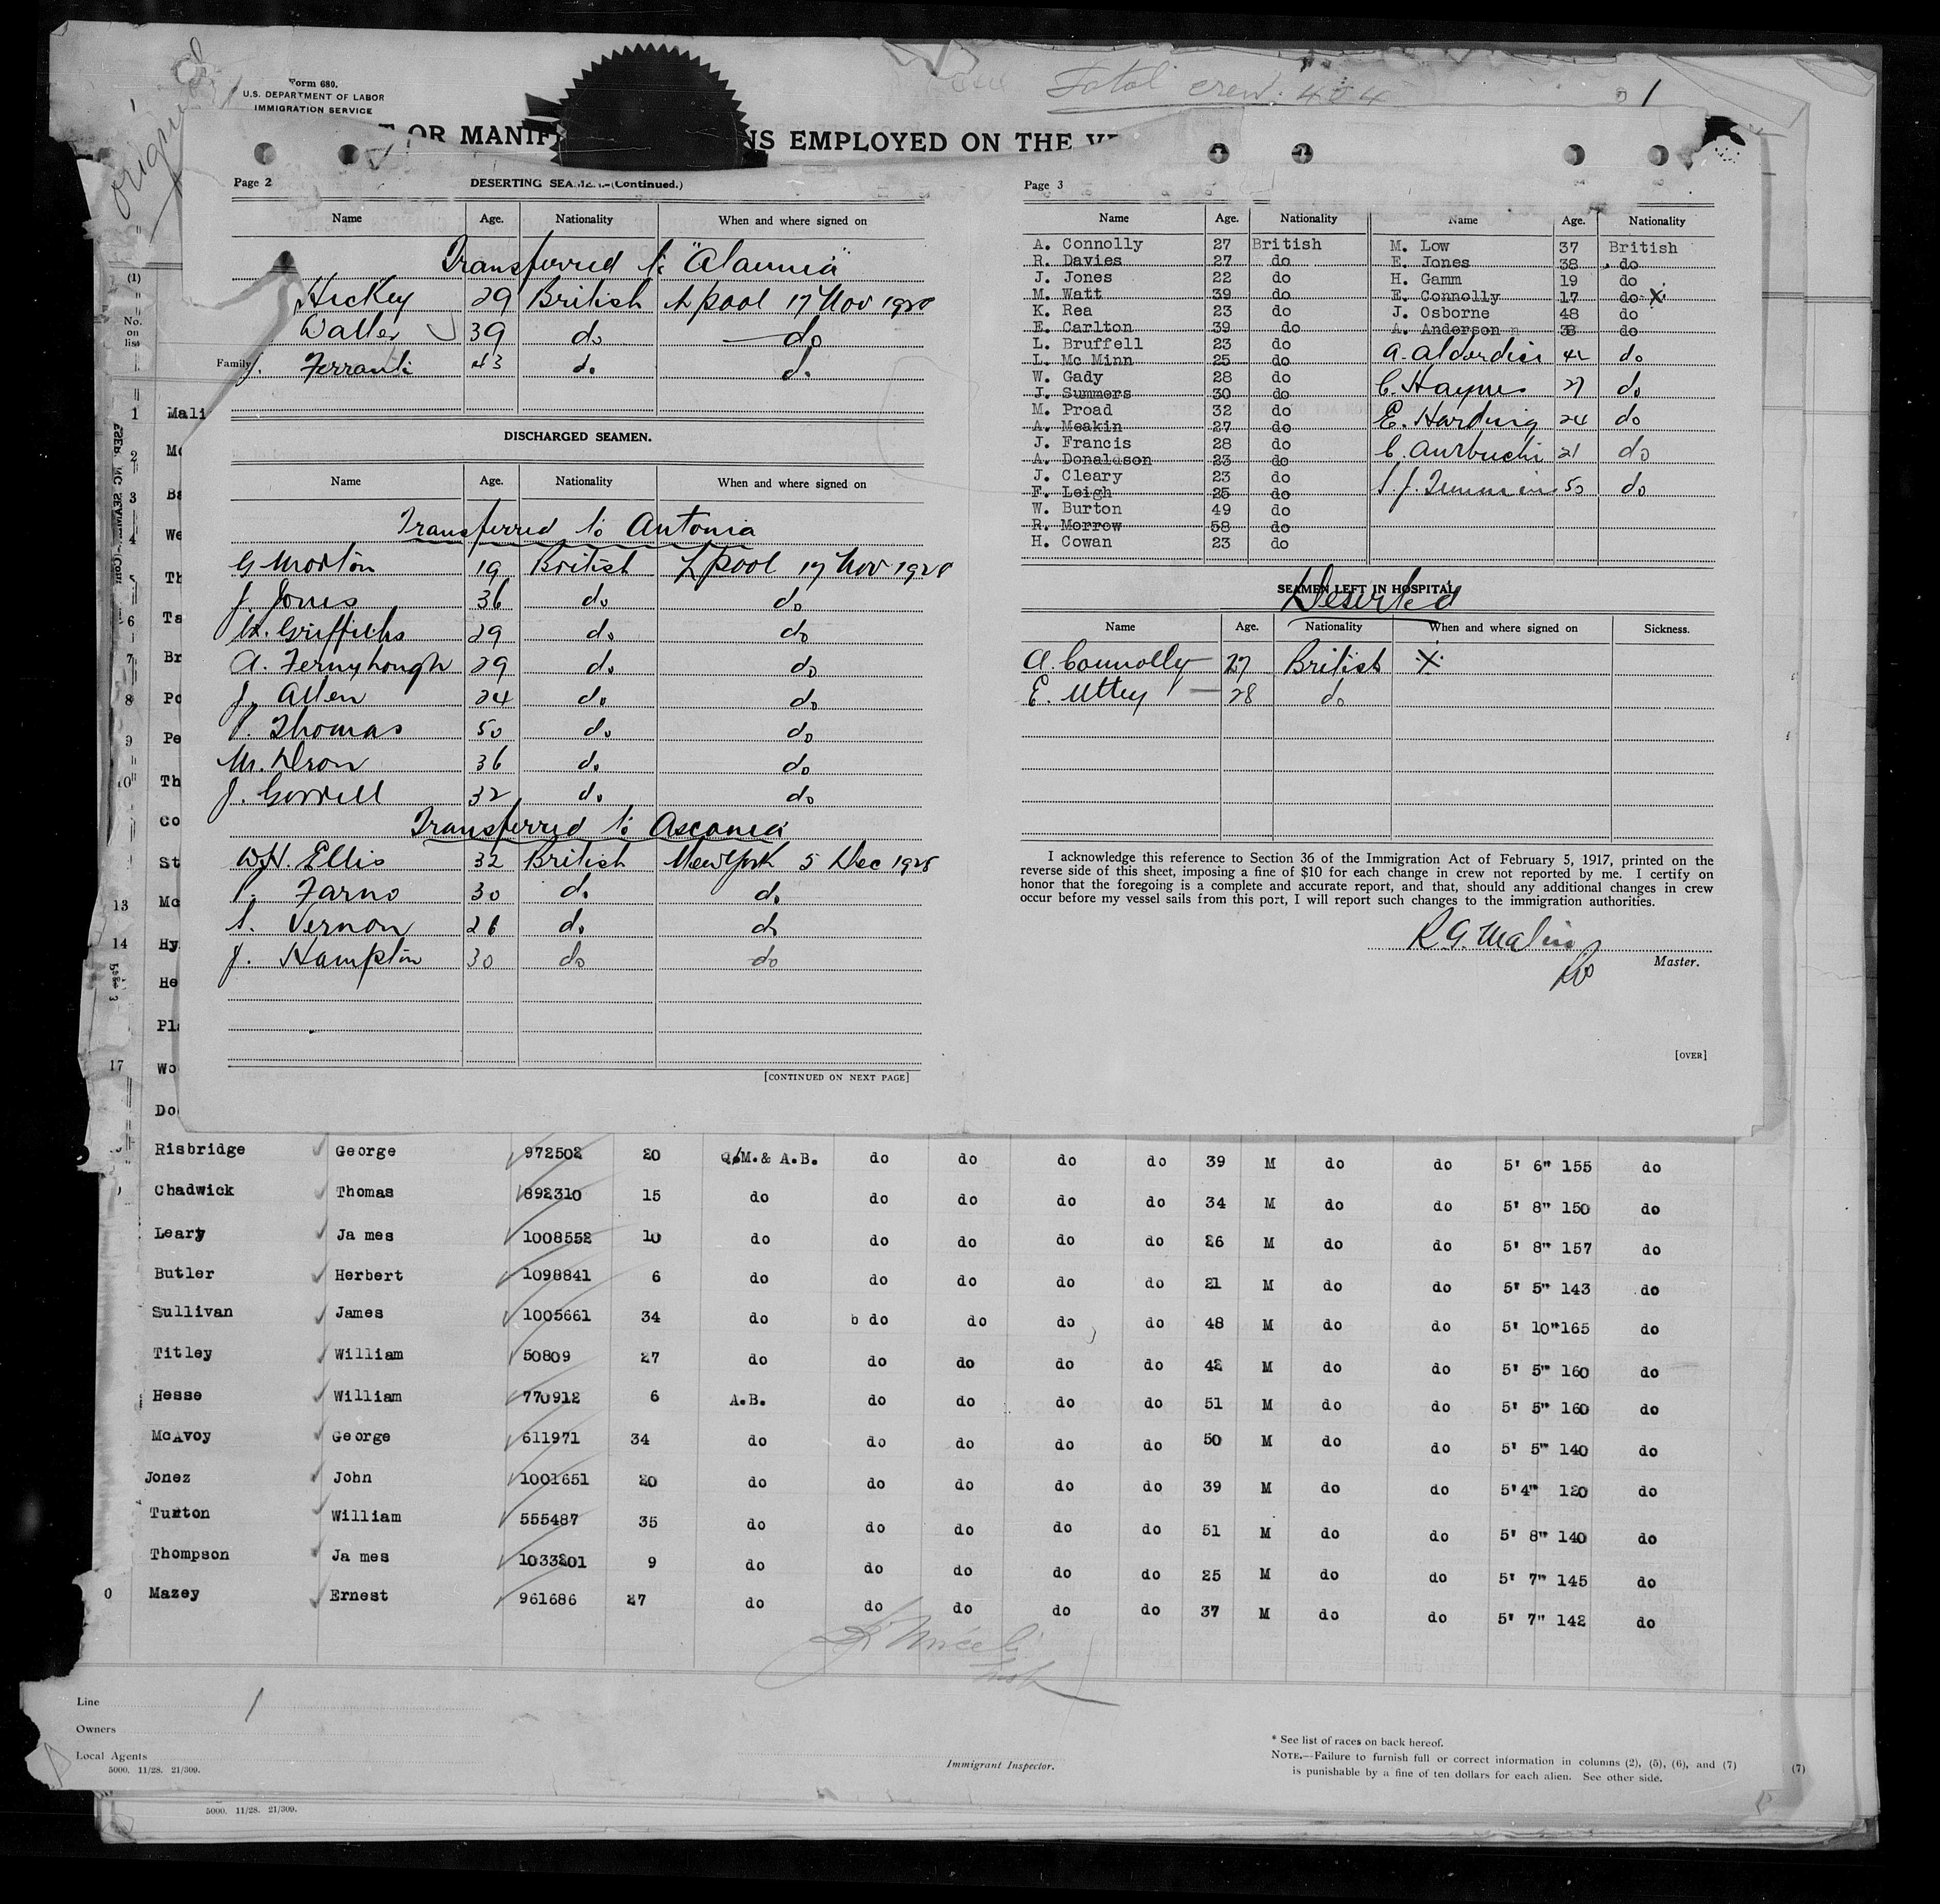 Form 680.
U.S. DEPARTMENT OF LABOR
IMMIGRATION SERVICE
Total crew. 404
1
OR MANIF NS EMPLOYED ON THE V
Page 2
DESERTING SEAMEN.—(Continued.)
Name Age. Nationality When and where signed on
Transferred to "Alaunia"
Hickey 29 British L'pool 17 Nov 1928
Waller 39 do do
J. Ferranti 43 do do
DISCHARGED SEAMEN.
Name Age. Nationality When and where signed on
Transferred to Antonia
G Morton 19 British L'pool 17 Nov 1928
J. Jones 36 do do
Griffiths 29 do do
A. Fernyhough 29 do do
J. Allen 24 do do
Thomas 50 do do
M. Dron 36 do do
J. Gorrell 32 do do
Transferred to Ascania
W.H. Ellis 32 British New York 5 Dec 1928
Farno 30 do do
S. Vernon 26 do do
J. Hampton 30 do do
[CONTINUED ON NEXT PAGE]
Page 3
Name Age. Nationality Name Age. Nationality
A. Connolly 27 British M. Low 37 British
R. Davies 27 do E. Jones 38 do
J. Jones 22 do H. Gamm 19 do
M. Watt 39 do E. Connolly 17 do X
K. Rea 23 do J. Osborne 48 do
E. Carlton 39 do A. Anderson 38 do
L. Bruffell 23 do
L. Mc Minn 25 do A. 42 do
W. Gady 28 do C. Haynes 27 do
J. Summers 30 do
M. Proad 32 do E. Harding 24 do
A. Meakin 27 do
J. Francis 28 do C. 21 do
A. Donaldson 23 do
J. Cleary 23 do 50 do
F. Leigh 25 do
W. Burton 49 do
R. Morrow 58 do
H. Cowan 23 do
SEAMEN LEFT IN HOSPITAL
Deserted
Name Age. Nationality When and where signed on Sickness.
A. Connolly 27 British X
E. Uttey 28 do
I acknowledge this reference to Section 36 of the Immigration Act of February 5, 1917, printed on the
reverse side of this sheet, imposing a fine of $10 for each change in crew not reported by me. I certify on
honor that the foregoing is a complete and accurate report, and that, should any additional changes in crew
occur before my vessel sails from this port, I will report such changes to the immigration authorities.
R G. Malin
Master.
[OVER]
(1)
No.
on
list
Family
1 Mali
2 Mc
3 Ba
4 We
5 Th
6 Ta
7 Br
8 Po
9 Pe
10 Th
Co
St
13 Mc
14 Hy
He
Pla
17 Wo
Do
Risbridge George 972502 20 Q/M.& A.B. do do do do 39 M do do 5' 6" 155 do
Chadwick Thomas 892310 15 do do do do do 34 M do do 5' 8" 150 do
Leary Ja mes 1008552 10 do do do do do 26 M do do 5' 8" 157 do
Butler Herbert 1098841 6 do do do do do 21 M do do 5' 5" 143 do
Sullivan James 1005661 34 do b do do do do 48 M do do 5' 10" 165 do
Titley William 50809 27 do do do do do 42 M do do 5' 5" 160 do
Hesse William 770912 6 A.B. do do do do 51 M do do 5' 5" 160 do
McAvoy George 611971 34 do do do do do 50 M do do 5' 5" 140 do
Jonez John 1001651 20 do do do do do 39 M do do 5'4" 120 do
Turton William 555487 35 do do do do do 51 M do do 5' 8" 140 do
Thompson Ja mes 1033201 9 do do do do do 25 M do do 5' 7" 145 do
0 Mazey Ernest 961686 27 do do do do do 37 M do do 5' 7" 142 do
Line 1
Owners
Local Agents
5000. 11/28. 21/309.
Immigrant Inspector.
* See list of races on back hereof.
NOTE.—Failure to furnish full or correct information in columns (2), (5), (6), and (7)
is punishable by a fine of ten dollars for each alien. See other side.
(7)
5000. 11/28. 21/309.